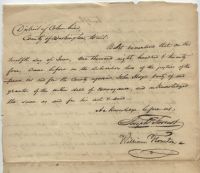 District of Columbia
County of Washington, to wit
Be it remembered that on this
twelfth day of June, One thousand eight hundred & twenty
four, Came before us the Subscribers two of the justices of the
peace in and for the County aforesaid John Hoye party and
grantor of the within deed of conveyance, and acknowledged
the same as and for his act & deed
Acknowledged before us,
Joseph Forrest
William Thornton